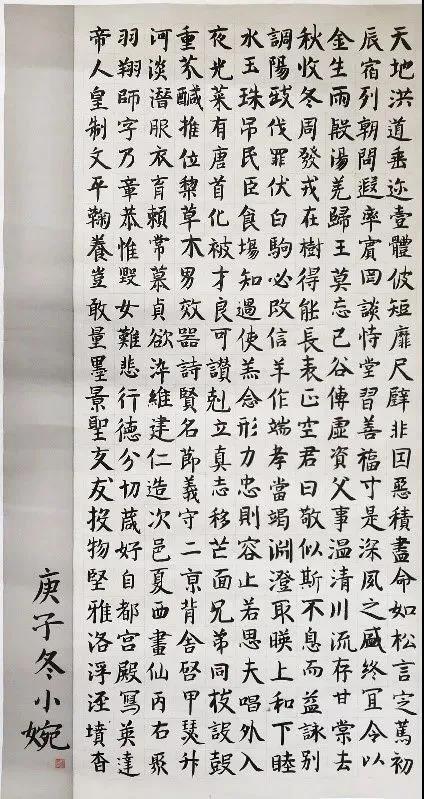 天地洪道垂迩壹體彼短靡尺璧非因惡積盡命如松言定篤初
辰宿列朝問遐率賓罔談恃堂習善福寸是深夙之盛終宜令以
金生雨殷湯羌歸王莫忘己谷傳虛資父事温清川流存甘棠去
秋收冬周發戎在樹得能長表正空君曰敬似斯不息而益詠別
調陽致伐罪伏白駒必改信羊作端孝當竭淵澄取暎上和下睦
水玉珠吊民臣食場知過使羔念形力忠則容止若思夫唱外入
夜光菜有唐首化被才良可讚剋立真志移芒面兄弟同枝設鼓
重芥鹹推位黎草木男效器詩賢名節義守二京背舍啓甲瑟升
河淡潛服衣育賴常慕貞欲染維建仁造次邑夏西畫仙丙右聚
羽翔師字乃章恭惟毀女難悲行德分切箴好自都宮殿寫英達
帝人皇制文平鞠養豈敢量墨景聖交友投物堅雅洛浮涇墳杳
庚子冬小婉